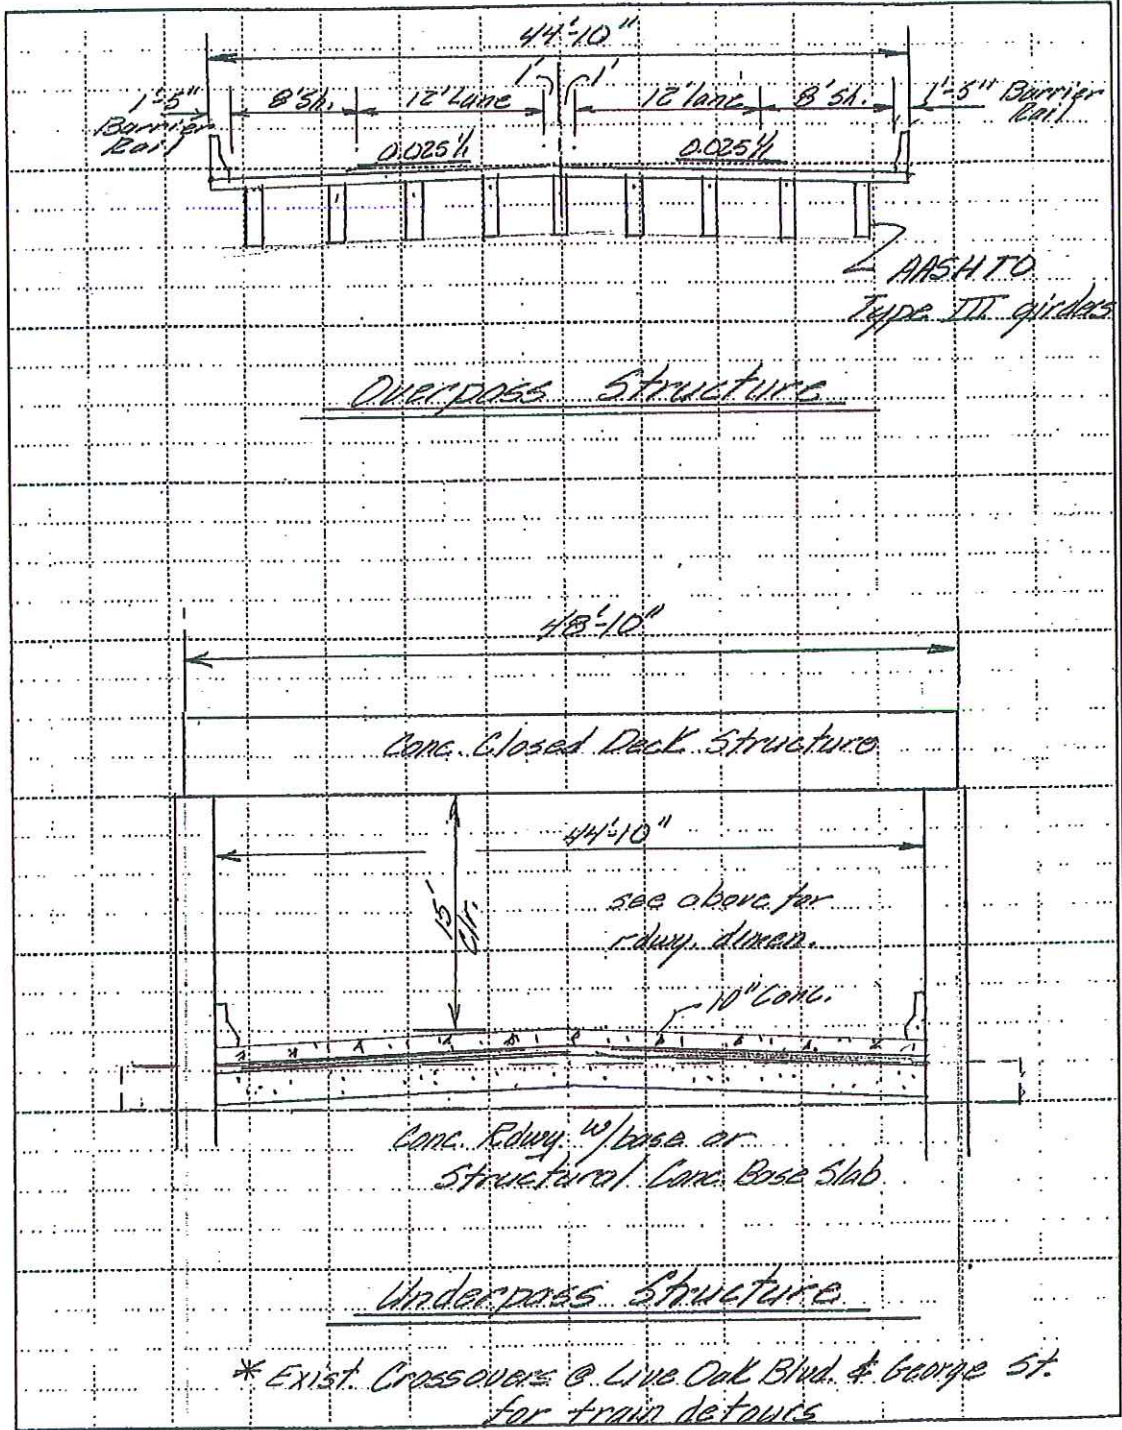 44'-10"
1' 1'
1'-5" 8'Sh. 12'Lane 12'lane 8'Sh. 1'-5" Barrier
Barrier Rail
Rail
0.025'/1 0.025'/1
AASHTO
Type III girders
Overpass Structure
48'-10"
Conc. Closed Deck Structure
44'-10"
15'
Clr.
see above for
rdwy. dimen.
10" Conc.
Conc. Rdwy. w/base or
Structural Conc. Base Slab
Underpass Structure
* Exist. Crossovers @ Live Oak Blvd. & George St.
for train detours